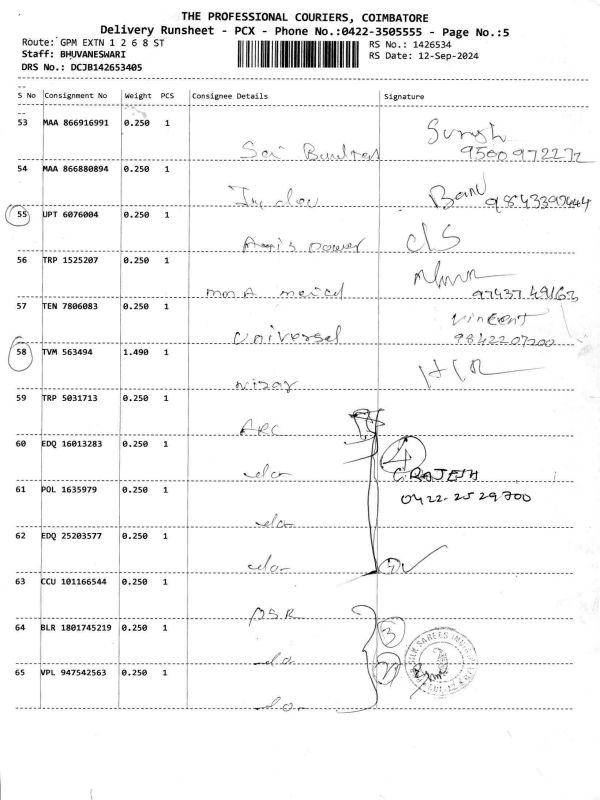 THE PROFESSIONAL COURIERS, COIMBATORE
Delivery Runsheet - PCX - Phone No.:0422-3505555 - Page No.:5
Route: GPM EXTN 1 2 6 8 ST
RS No.: 1426534
Staff: BHUVANESWARI
RS Date: 12-Sep-2024
DRS No.: DCJB142653405
S No Consignment No Weight PCS Consignee Details Signature
53 MAA 866916991 0.250 1
9500972272
54 MAA 866880894 0.250 1
Banu
55 UPT 6076004 0.250 1
power c/s
56 TRP 1525207 0.250 1
57 TEN 7806083 0.250 1
universal Vincent
9842207200
58 TVM 563494 1.490 1
nizar
59 TRP 5031713 0.250 1
ARC
60 EDQ 16013283 0.250 1 4
do G. RAJESH
61 POL 1635979 0.250 1 0422-2529700
do
62 EDQ 25203577 0.250 1
do
63 CCU 101166544 0.250 1
PSR
64 BLR 1801745219 0.250 1 3
do
65 VPL 947542563 0.250 1
do